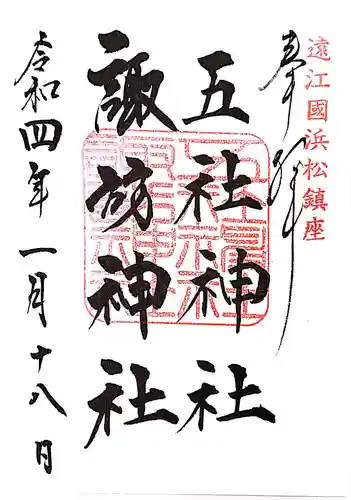 遠江國浜松鎮座
奉拝
五社神社
諏訪神社
令和四年一月十八日